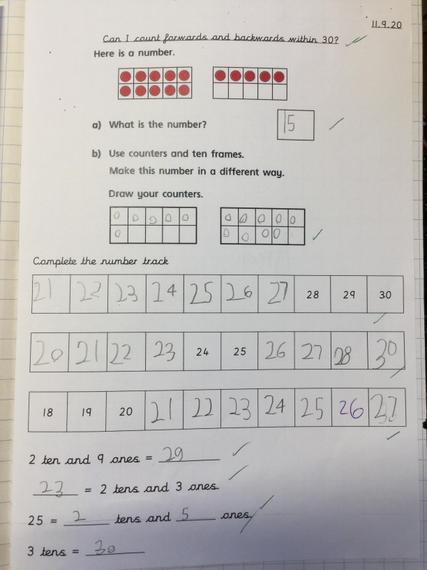 11.9.20
Can I count forwards and backwards within 30?
Here is a number.
a) What is the number? 15
b) Use counters and ten frames.
Make this number in a different way.
Draw your counters.
Complete the number track
21 22 23 24 25 26 27 28 29 30
20 21 22 23 24 25 26 27 28 30
18 19 20 21 22 23 24 25 26 27
2 ten and 9 ones = 29
23 = 2 tens and 3 ones
25 = 2 tens and 5 ones
3 tens = 30